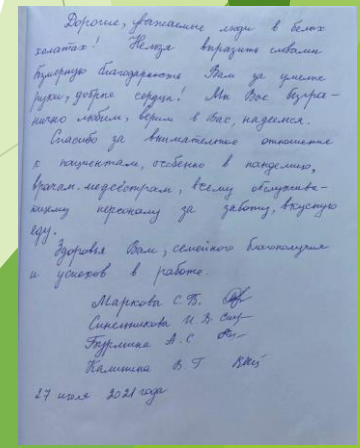 Дорогие, уважаемые люди в белых
халатах! Нельзя выразить словами
безмерную благодарность Вам за умелые
руки, добрые сердца! Мы Вас безгра-
нично любим, верим в Вас, надеемся.
Спасибо за внимательное отношение
к пациентам, особенно в пандемию,
врачам, медсёстрам, всему обслужива-
ющему персоналу за заботу, вкусную
еду.
Здоровья Вам, семейного благополучия
и успехов в работе.
Маркова С.Б.
Синельникова И.В.
А.С.
Калинина В.Г.
27 июля 2021 года